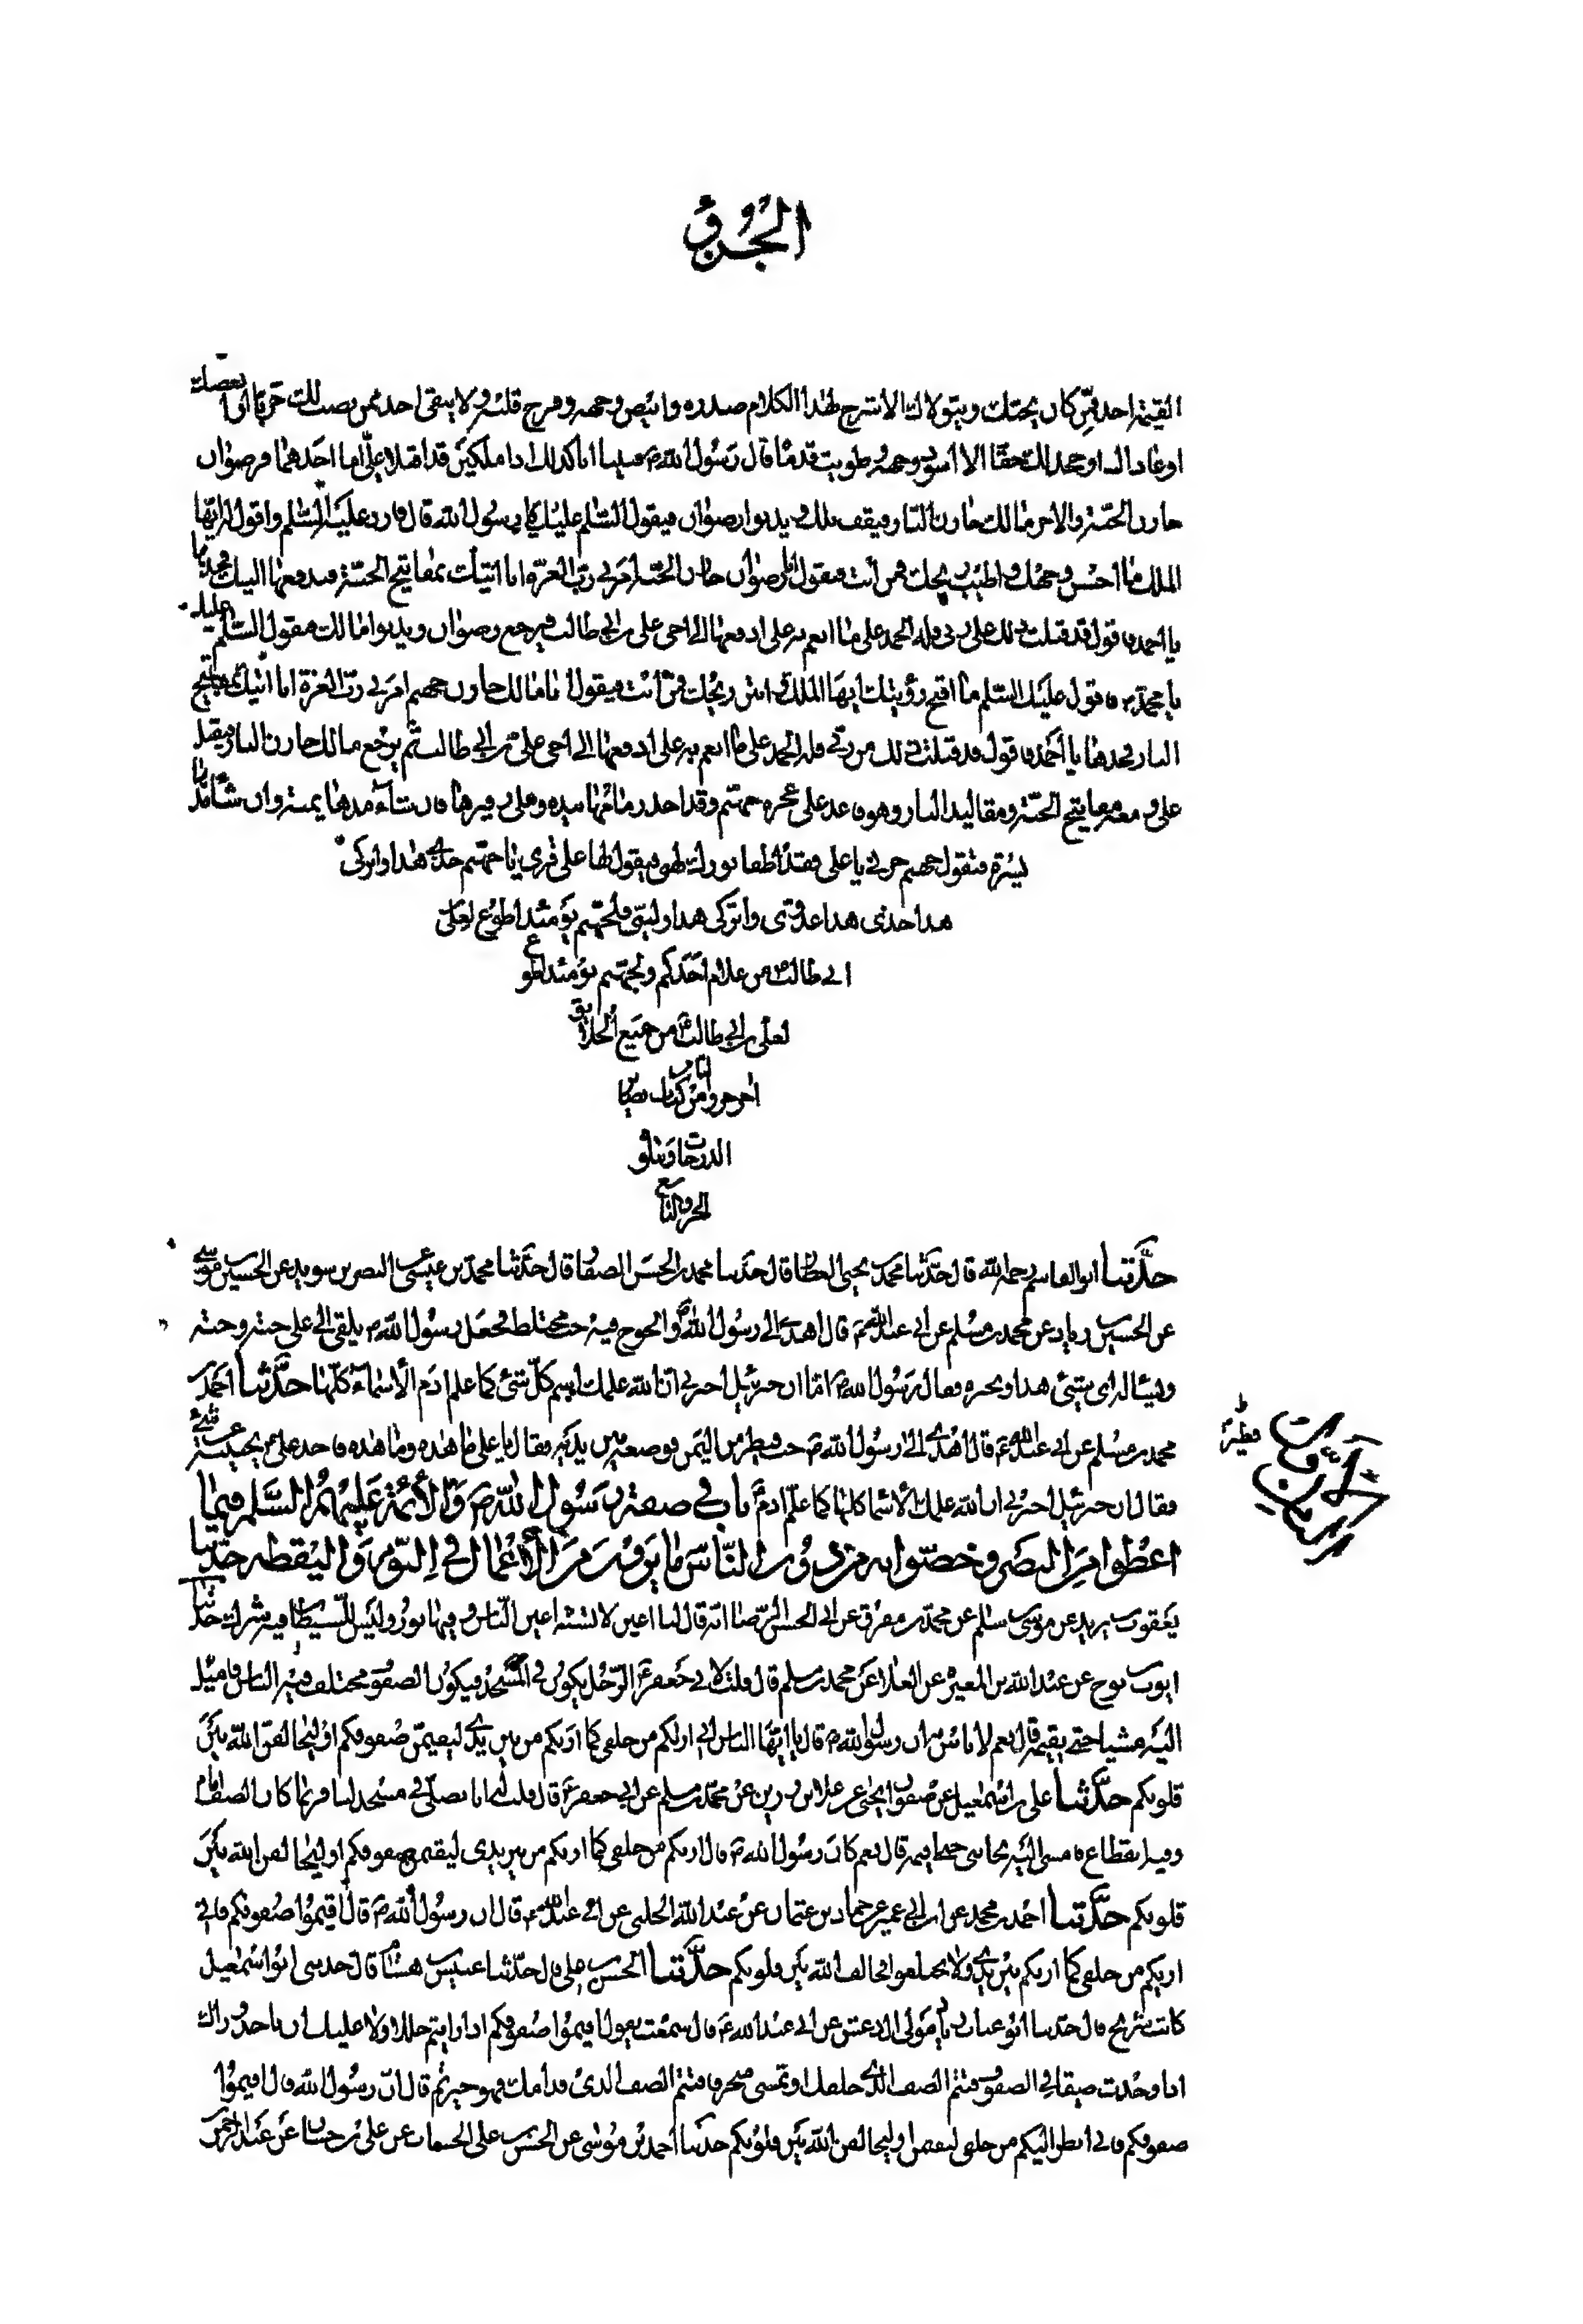 الجزء
القيمة احد ممن كان يحبك ويتولاك الا اشرح لهذا الكلام صدره وابيض وجهه وفرح قلبه ولا يبقى احد ممن نصب لك حربا او ابغضك
او عاداك او جحد لك حقا الا اسود وجهه وطويت قدماه قال رسول الله ص فبينا انا كذلك اذا ملكين قد اقبلا علي اما احدهما فرضوان
خازن الجنة والاخر مالك خازن النار فيقف مالك ويدنو رضوان فيقول السلم عليك يا رسول الله قال فارد عليه السلم واقول له ايها
الملك ما احسن وجهك واطيب ريحك فمن انت فيقول انا رضوان خازن الجنة امرني رب العزة انا اتيتك بمفاتيح الجنة فدفعها اليك فخذها
يا احمد فاقول قد قبلت ذلك من ربي فله الحمد على ما انعم به علي ادفعها الى اخي علي بن ابي طالب فيرجع رضوان ويدنو مالك فيقول السلم عليك
يا محمد ص فاقول عليك السلم ما اقبح رؤيتك ايها الملك وانتن ريحك فمن انت فيقول انا مالك خازن جهنم امرني رب العزة انا اتيتك بمفاتيح
النار فخذها يا احمد فاقول قد قبلت ذلك من ربي فله الحمد على ما انعم به علي ادفعها الى اخي علي بن ابي طالب ثم يرجع مالك خازن النار فيقبل
علي ومعه مفاتيح الجنة ومقاليد النار وهو قاعد على عجزة جهنم وقد اخذ زمامها بيده وعلى زفيرها فان شاء مدها يمنة وان شاء مدها
يسرة فتقول جهنم جزني يا علي فقد اطفا نورك لهبي فيقول لها علي قري يا جهنم خذي هذا واتركي
هذا خذي هذا عدوي واتركي هذا وليي فلجهنم يومئذ اطوع لعلي بن
ابي طالب من غلام احدكم ولجهنم يومئذ اطوع
لعلي بن ابي طالب من جميع الخلائق
اخر جزو الثامن من كتاب بصائر
الدرجات ويتلوه
الجزو التاسع
حدثنا ابو القاسم رحمه الله قال حدثنا محمد بن يحيى العطار قال حدثنا محمد بن الحسن الصفار قال حدثنا محمد بن عيسى عن النضر بن سويد عن الحسين بن موسى
عن الحسين بن زياد عن محمد بن مسلم عن ابي عبد الله ع قال اهدي الى رسول الله ص دالجوج فيه حب مختلط فجعل رسول الله ص يلقي الى علي حبة وحبة
ويسأله اي شئ هذا ويخبره فقال رسول الله ص اما ان جبرئيل اخبرني ان الله علمك اسم كل شئ كما علم ادم الاسماء كلها حدثنا احمد بن
محمد بن مسلم عن ابي عبد الله ع قال اهدي الى رسول الله ص حب من اليمن فوضعه بين يديه فقال يا علي ما هذه وما هذه فاخذ علي ع يجيبه عن شئ
فقال ان جبرئيل اخبرني ان الله علمك الاسماء كلها كما علم ادم باب في صفة رسول الله ص والائمة عليهم السلم فيما
اعطوا من البصر وخصوا به من دون الناس ما يرون من الاعمال في النوم واليقظه حدثنا
يعقوب بن يزيد عن موسى بن سلم عن محمد بن مقرن عن ابي الحسن الرضا انه قال لنا اعين لا تشبه اعين الناس وفيها نور وليس للشيطان فيه شرك حدثنا
ايوب بن نوح عن عبد الله بن المغيرة عن العلا عن محمد بن مسلم قال قلت لابي جعفر ع الرجل يكون في المسجد فيكون الصفوف مختلف فيه الناس فاميل
اليه مشيا حتى يقيمه قال نعم لا باس ان رسول الله ص قال يا ايها الناس اني اريكم من خلفي كما اريكم من بين يدي لتقيمن صفوفكم او ليخالفن الله بين
قلوبكم حدثنا علي بن اسمعيل عن صفوان بن يحيى عن علا بن رزين عن محمد بن مسلم عن ابي جعفر ع قال قلت له انا نصلي في مسجد لنا فربما كان الصف امام
وفيه انقطاع فامشي اليه بجانبي حتى اقيمه قال نعم كان رسول الله ص قال اريكم من خلفي كما اريكم من بين يدي لتقيمن صفوفكم او ليخالفن الله بين
قلوبكم حدثنا احمد بن محمد عن ابن ابي عمير عن حماد بن عثمان عن عبد الله الحلبي عن ابي عبد الله ع قال ان رسول الله ص قال اقيموا صفوفكم فاني
اريكم من خلفي كما اريكم بين يدي ولا تختلفوا فيخالف الله بين قلوبكم حدثنا الحسن بن علي قال حدثنا عبيس بن هشام قال حدثني ابو اسمعيل
كاتب شريح قال حدثنا ابو عتاب زياد مولى ال دعش عن ابي عبد الله ع قال سمعته يقول اقيموا صفوفكم اذا رايتم خللا ولا عليك ان تاخذ وراك
اذا وجدت ضيقا في الصفوف فتتم الصف الذي خلفك او تمشي منحرفا فتتم الصف الذي قدامك فهو خير ثم قال ان رسول الله قال اقيموا
صفوفكم فاني انظر اليكم من خلفي لتقيمن او ليخالفن الله بين قلوبكم حدثنا احمد بن موسى عن الحسن بن علي الخشاب عن علي بن حسان عن عبد الرحمن